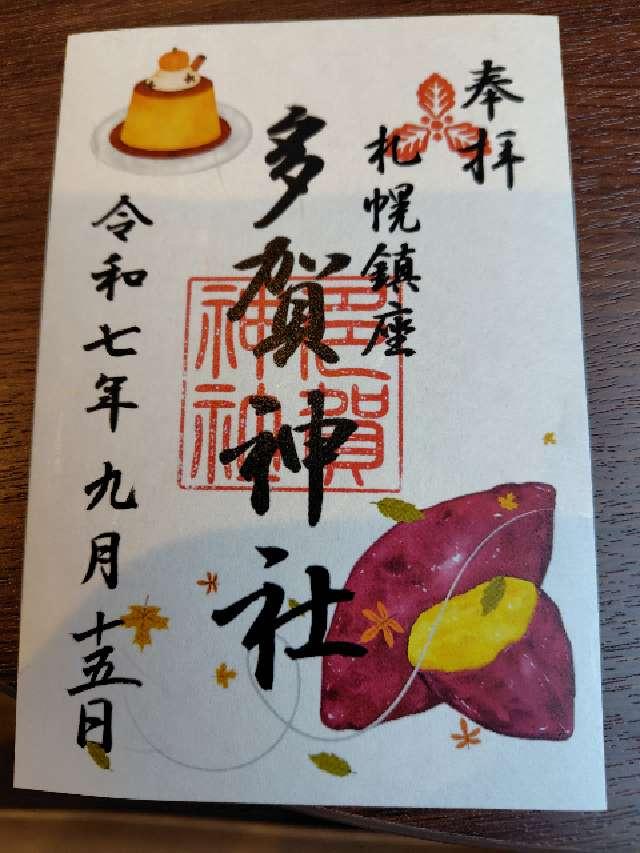 奉拝
札幌鎮座
多賀神社
多賀
神社
令和七年九月十五日